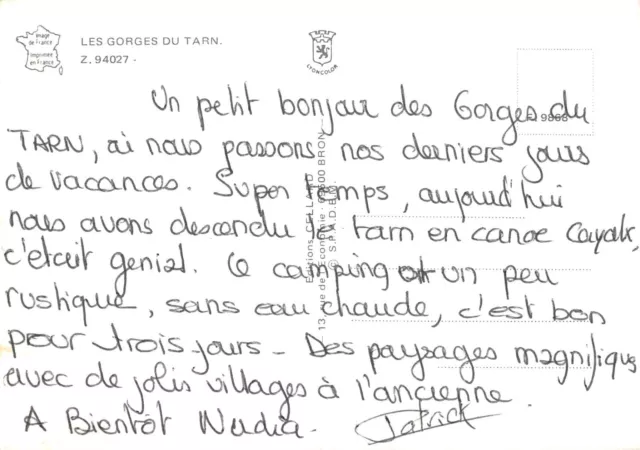 Image
de France
Imprimée
en France
LES GORGES DU TARN.
Z. 94027 -
LYONCOLOR
9868
Un petit bonjour des Gorges du
TARN, ai nous passons nos derniers jours
de vacances. Super temps, aujourd'hui
nous avons descendu le tarn en canoe Cayak,
c'etait genial. Ce camping est un peu
rustique, sans eau chaude, c'est bon
pour trois jours - Des paysages magnifique
avec de jolis villages à l'ancienne.
A Bientôt Nadia. Patrick
Editions CELLARD
13, rue de l'Economie - 69500 BRON
© S.P.A.D.E.M.